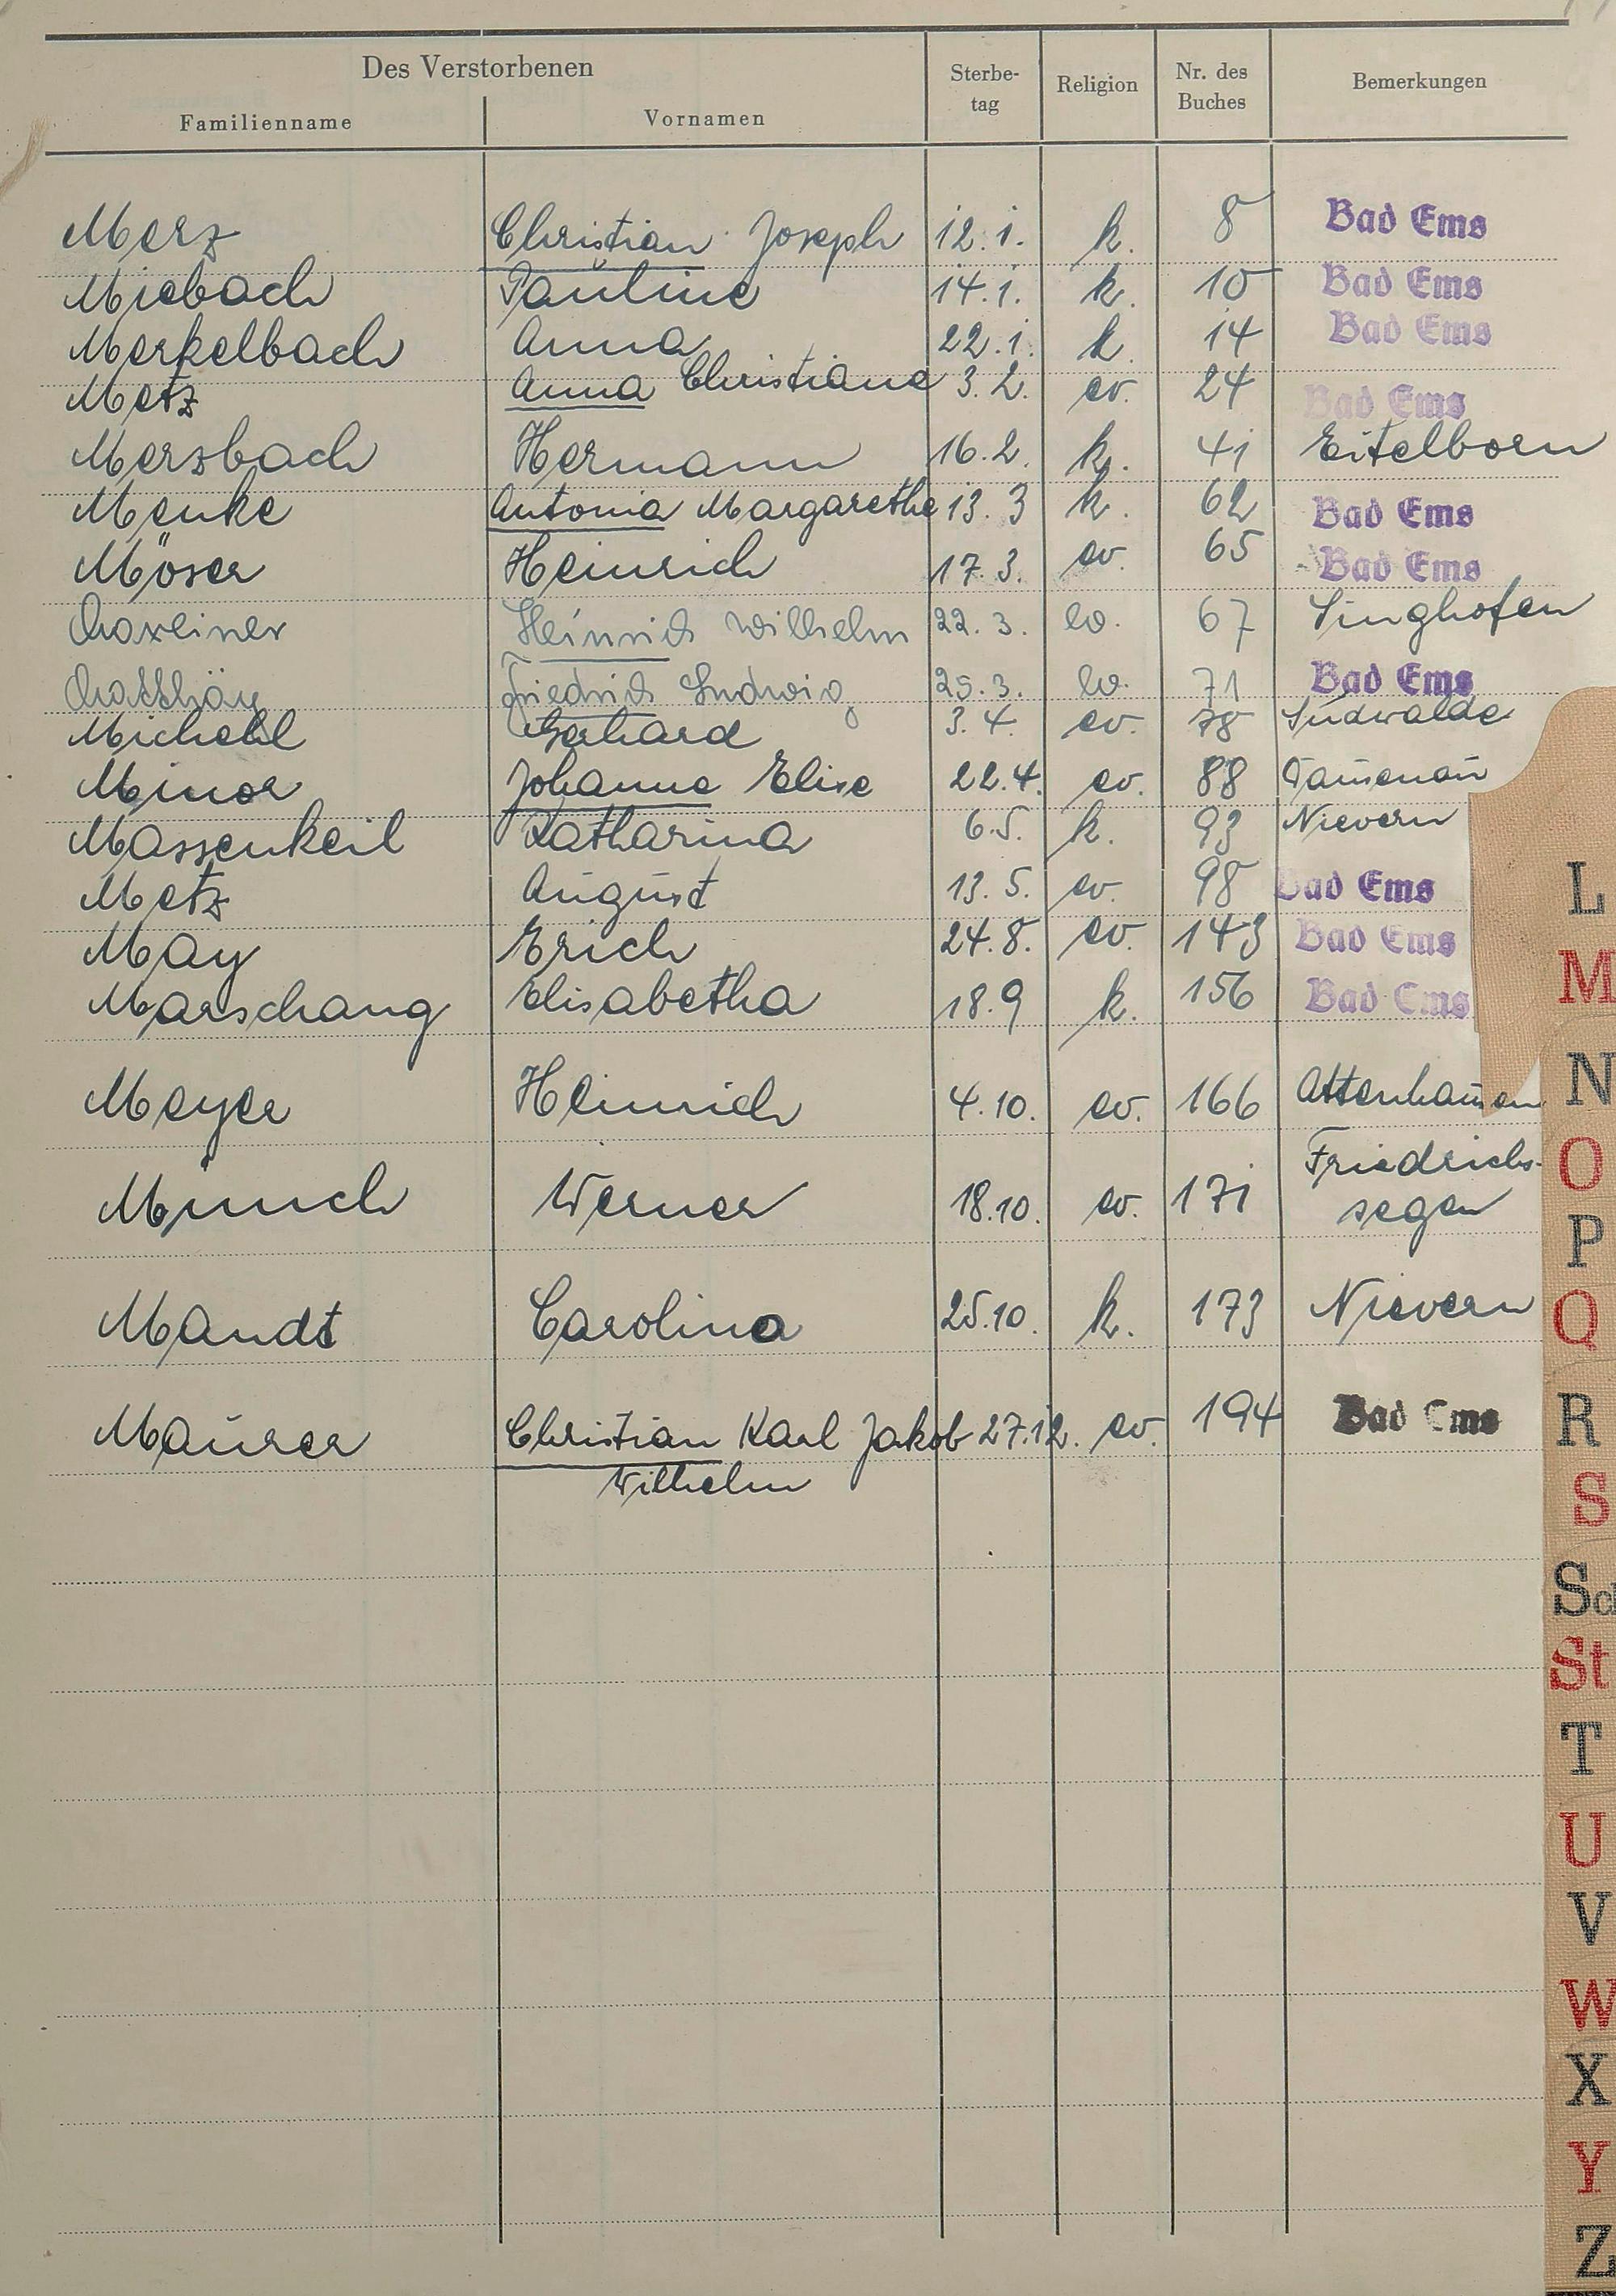 Des Verstorbenen
Familienname Vornamen Sterbe- tag Religion Nr. des Buches Bemerkungen
Merz Christian Joseph 12.1. k. 8 Bad Ems
Miebach Pauline 14.1. k. 10 Bad Ems
Merkelbach Anna 22.1. k. 14 Bad Ems
Metz Anna Christiane 3.2. ev. 24 Bad Ems
Mersbach Hermann 16.2. k. 41 Eitelborn
Menke Antonia Margarethe 13.3 k. 62 Bad Ems
Möser Heinrich 17.3. ev. 65 Bad Ems
Maxeiner Heinrich Wilhelm 22.3. ev. 67 Singhofen
Matthäy Friedrich Ludwig 25.3. ev. 71 Bad Ems
Michel Gerhard 3.4. ev. 78 Südwalde
Minor Johanna Elise 22.4. ev. 88 Dausenau
Massenkeil Katharina 6.5. k. 93 Nievern
Metz August 13.5. ev. 98 Bad Ems
May Erich 24.8. ev. 143 Bad Ems
Marschang Elisabetha 18.9 k. 156 Bad Ems
Meyer Heinrich 4.10. ev. 166 Attenhausen
Münch Werner 18.10. ev. 171 Friedrichs-
segen
Mandt Carolina 25.10. k. 173 Nievern
Maurer Christian Karl Jakob 27.12. ev. 194 Bad Ems
Wilhelm
L
M
N
O
P
Q
R
S
Sc
St
T
U
V
W
X
Y
Z